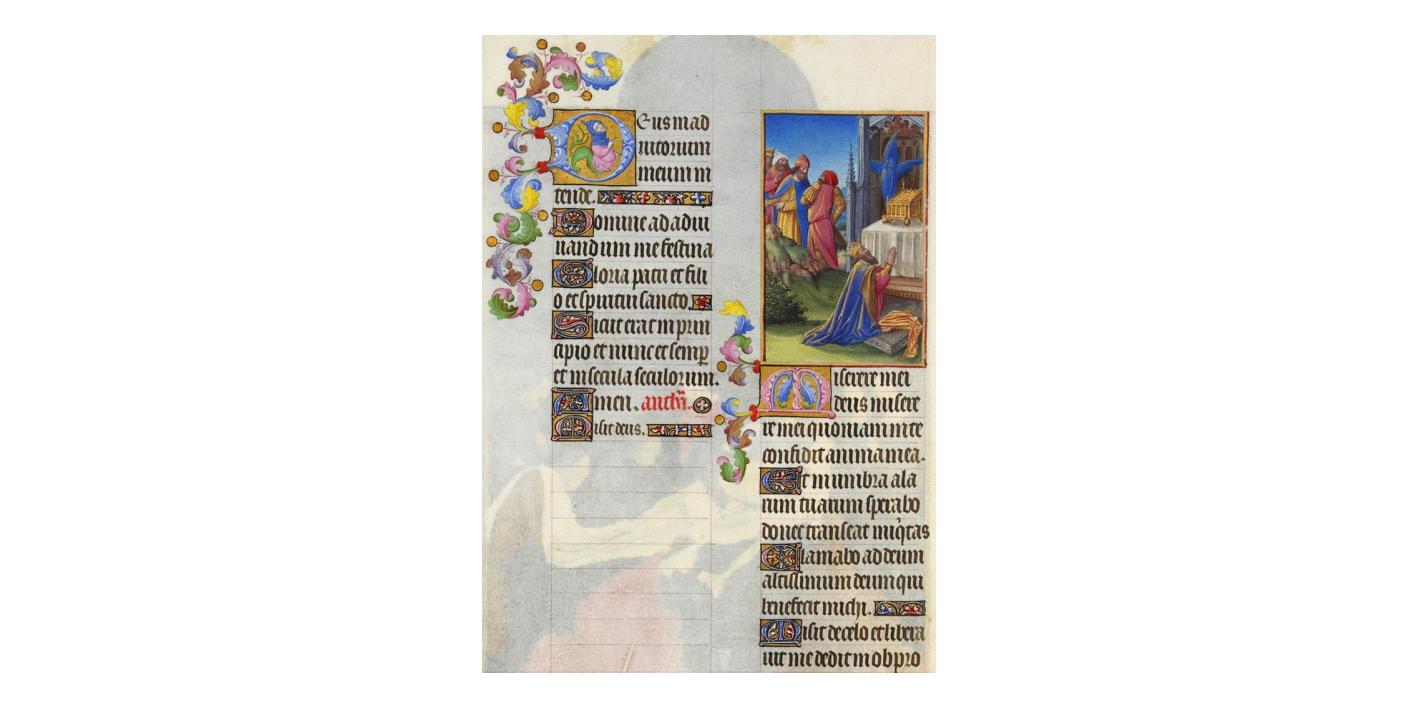 Eus in ad
iutorium
meum in
tende.
Domine ad adiu
uandum me festina
Gloria patri et fili
o et spiritui sancto.
Sicut erat in prin
cipio et nunc et semp̲
et in secula seculorum.
Amen. anthi̅.
Misit deus.
Miserere mei
deus misere
re mei quoniam in te
confidit anima mea.
Et in umbra ala
rum tuarum sperabo
donec transeat iniq̇tas
Clamabo ad deum
altissimum deum qui
benefecit michi.
Misit de celo et libera
uit me dedit in obpro